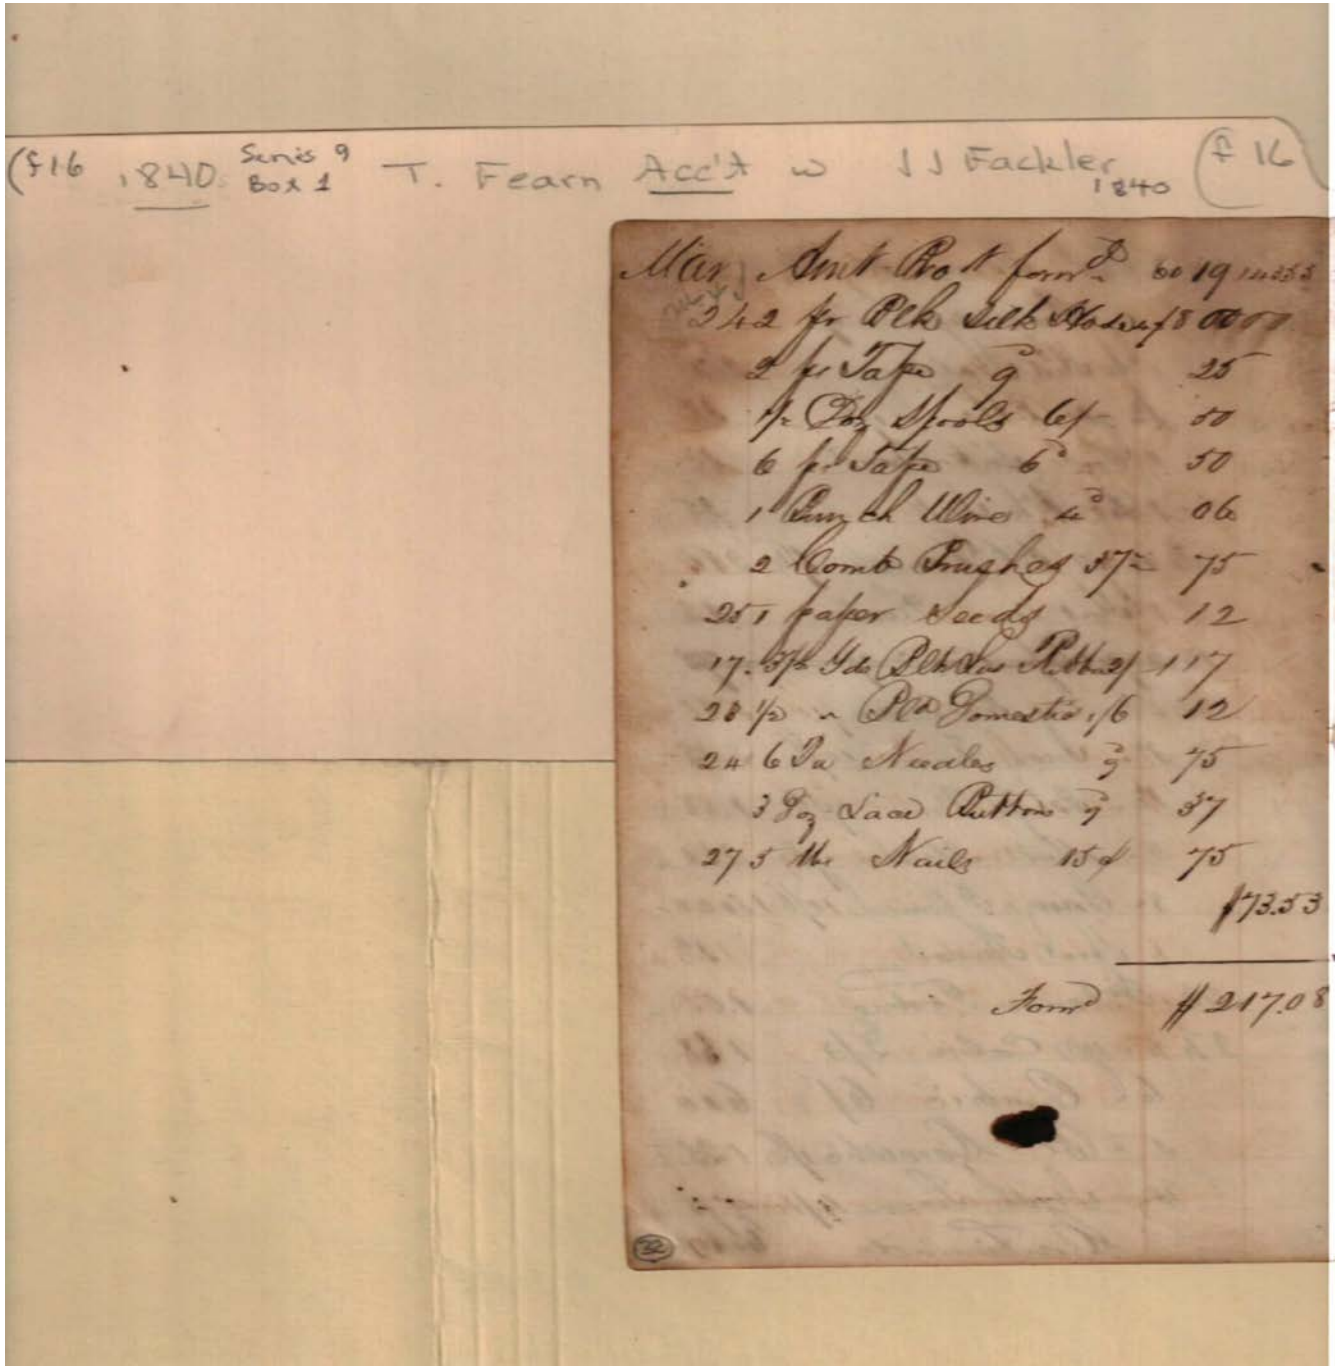 (f16 1840 Series 9 Box 1 T. Fearn Acc't w J J Fackler 1840 (f 16
Mar Amt Bro't forwd 60 19 143.55
24 2 pr Blk Silk Hose 8 00
2 ps Tape 9d 25
1/2 Doz Spools 6/ 50
6 ps Tape 6d 50
1 Bunch Wire 4d 06
2 Comb Brushes 37 1/2 75
25 1 paper Seeds 12
17. Yds Blk 2/ 1 17
23 1/2 " Domestic 1/6 12
24 6 Pa Needles 9d 75
3 Doz Lace Buttons 9d 37
27 5 lbs Nails 15¢ 75
$73.53
Forwd $217.08
32